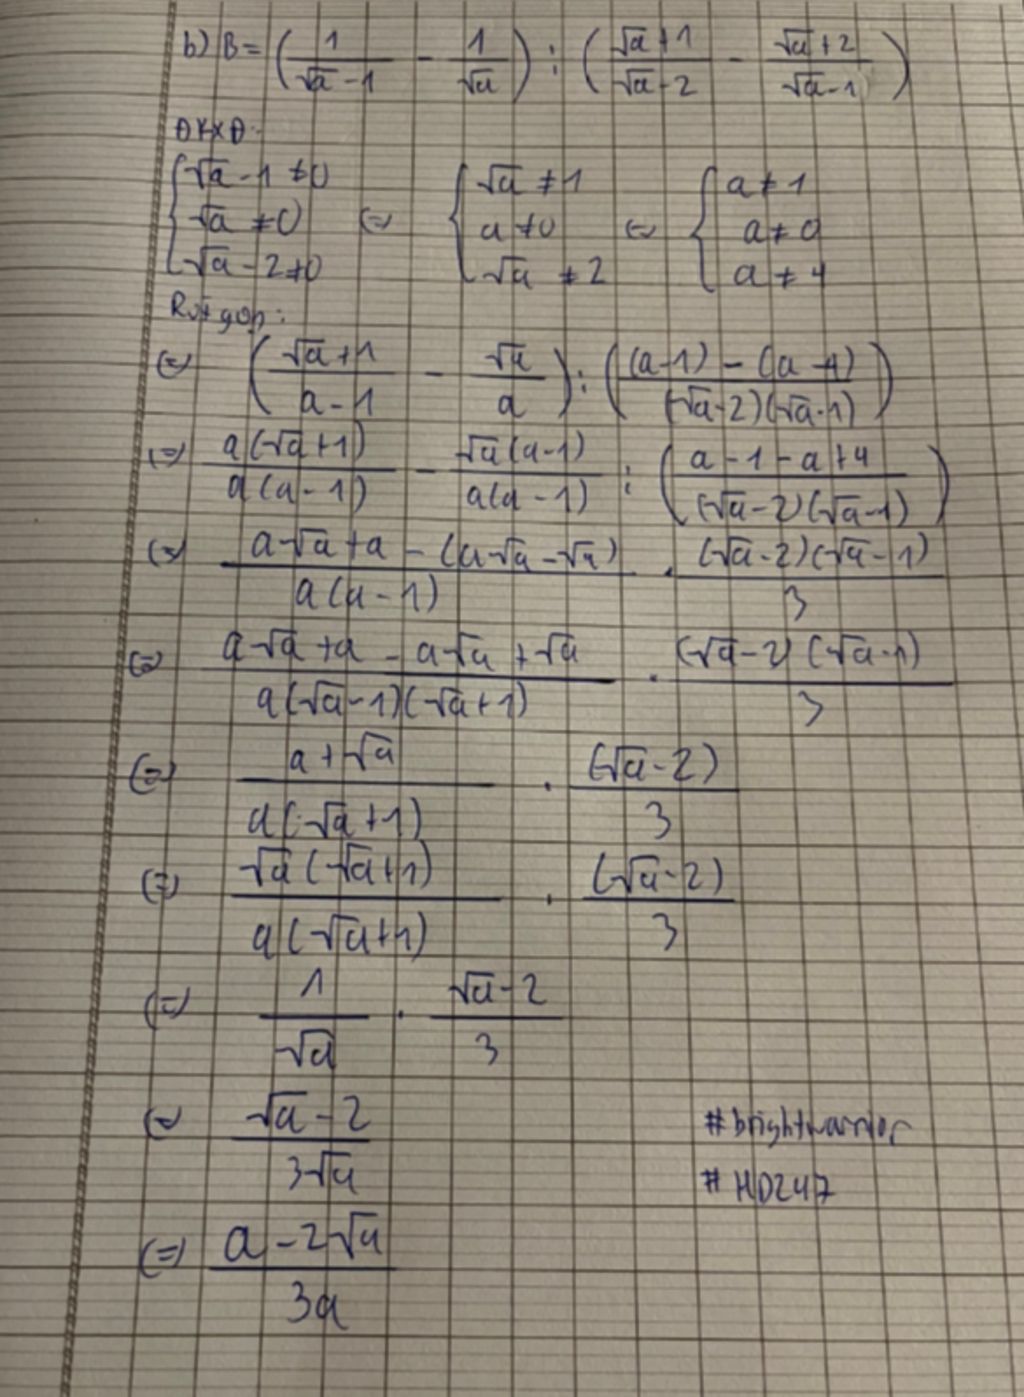 b) B = (1/(√a - 1) - 1/√a) : ((√a + 1)/(√a - 2) - (√a + 2)/(√a - 1))
ĐKXĐ:
{ √a - 1 ≠ 0 { √a ≠ 1 { a ≠ 1
{ √a ≠ 0 (=) { a ≠ 0 (=) { a ≠ 0
{ √a - 2 ≠ 0 { √a ≠ 2 { a ≠ 4
Rút gọn:
(=) ((√a + 1)/(a - 1) - √a/a) : (((a - 1) - (a - 4))/((√a - 2)(√a - 1)))
(=) a(√a + 1)/(a(a - 1)) - √a(a - 1)/(a(a - 1)) : ((a - 1 - a + 4)/((√a - 2)(√a - 1)))
(=) (a√a + a - (a√a - √a))/(a(a - 1)) . (√a - 2)(√a - 1)/3
(=) (a√a + a - a√a + √a)/(a(√a - 1)(√a + 1)) . (√a - 2)(√a - 1)/3
(=) (a + √a)/(a(√a + 1)) . (√a - 2)/3
(=) √a(√a + 1)/(a(√a + 1)) . (√a - 2)/3
(=) 1/√a . (√a - 2)/3
(=) (√a - 2)/(3√a)
#brightwarrior
#HD247
(=) (a - 2√a)/(3a)